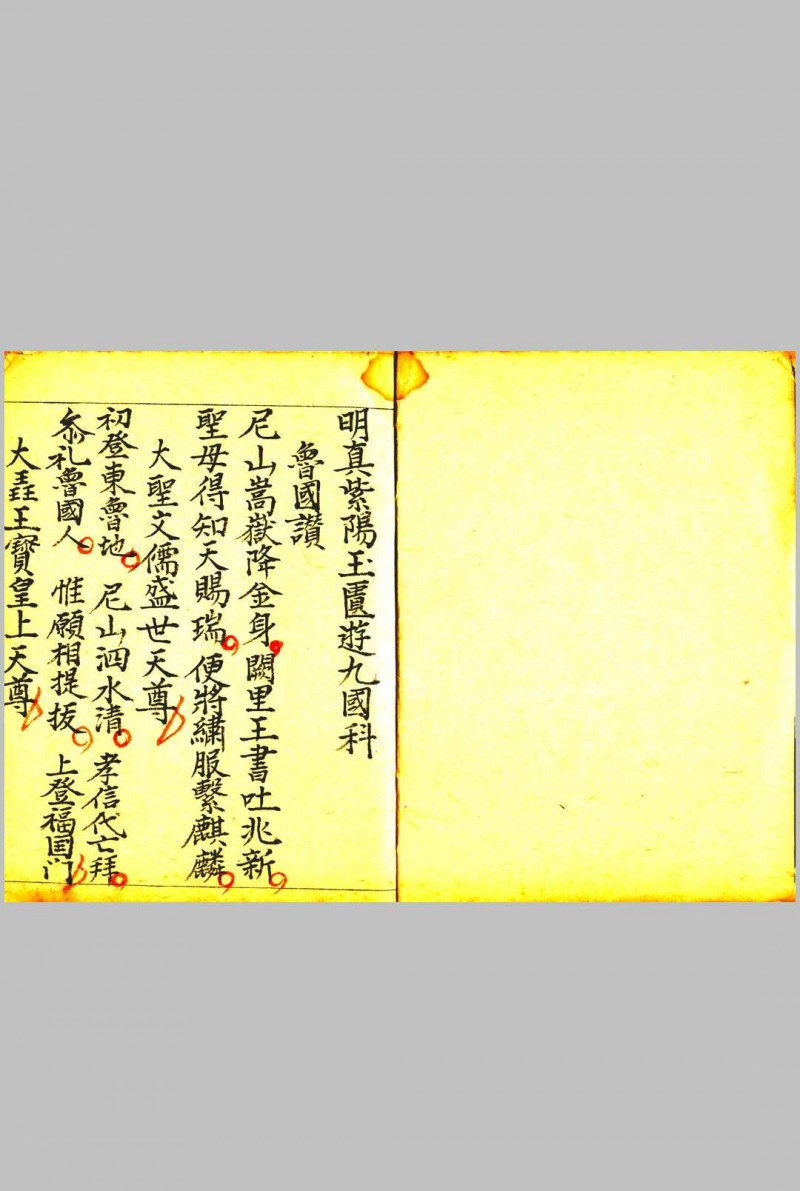 明真紫陽玉匱遊九國科
魯國讚
尼山嵩嶽降金身闕里王書吐兆新
聖母得知天賜瑞便將繡服繫麒麟
大聖文儒盛世天尊
初登東魯地 尼山泗水清 孝信代亡拜
叅礼魯國人 惟願相提拔 上登福国门
大羴王寳皇上天尊